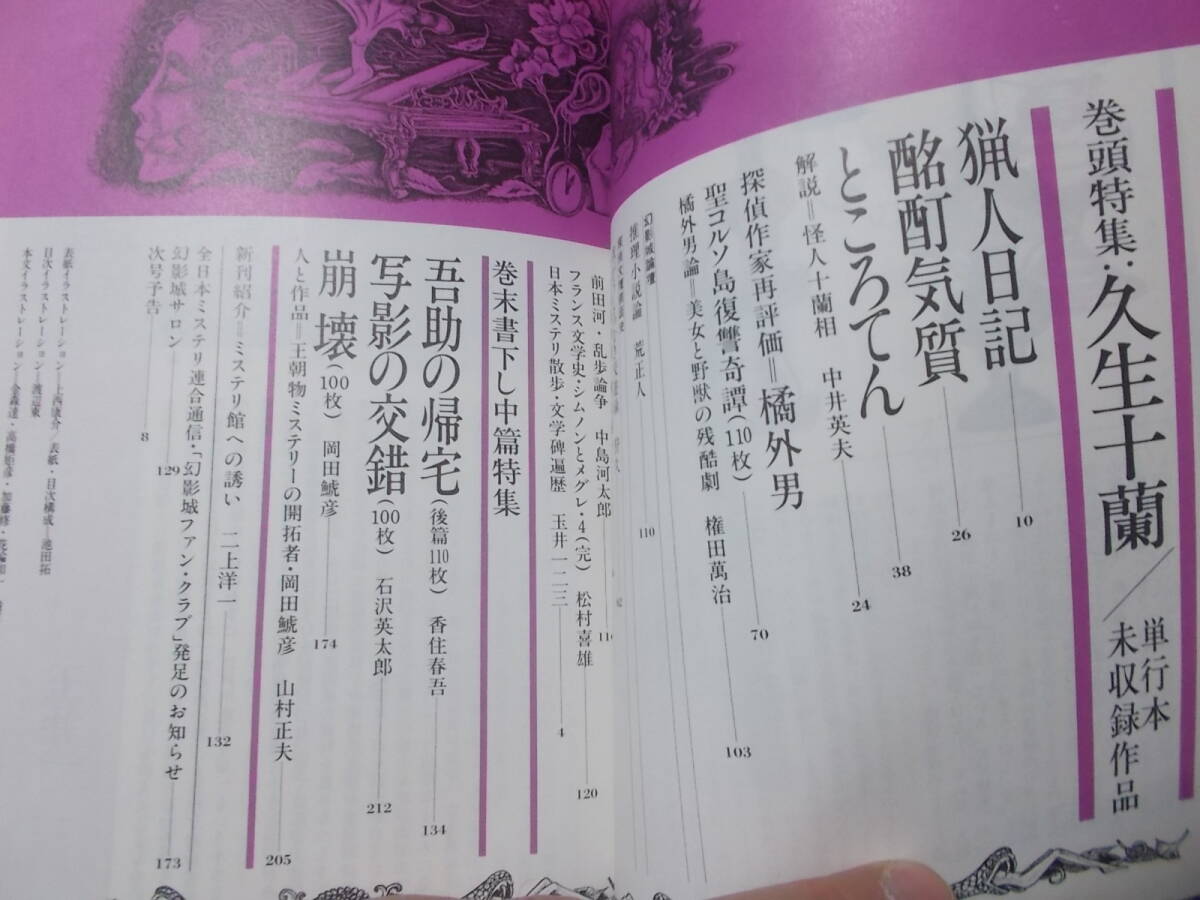 巻頭特集・久生十蘭／単行本未収録作品
猟人日記 10
酩酊気質 26
ところてん 38
解説＝怪人十蘭相 中井英夫 24
探偵作家再評価＝橘外男
聖コルソ島復讐奇譚(110枚) 70
橘外男論＝美女と野獣の残酷劇 権田萬治 103
幻影城論壇
推理小説論 荒正人 110
前田河・乱歩論争 中島河太郎
フランス文学史・シムノンとメグレ・4(完) 松村喜雄 120
日本ミステリ散歩・文学碑遍歴 玉井一二三 4
巻末書下し中篇特集
吾助の帰宅(後篇110枚) 香住春吾 134
写影の交錯(100枚) 石沢英太郎 212
崩壊(100枚) 岡田鯱彦 174
人と作品＝王朝物ミステリーの開拓者・岡田鯱彦 山村正夫 205
新刊紹介＝ミステリ館への誘い 二上洋一 132
全日本ミステリ連合通信・「幻影城ファン・クラブ」発足のお知らせ 173
幻影城サロン 129
次号予告 8
表紙イラストレーション──上西康介／表紙・目次構成──池田拓
目次イラストレーション──渡辺東
本文イラストレーション──金森達・高橋